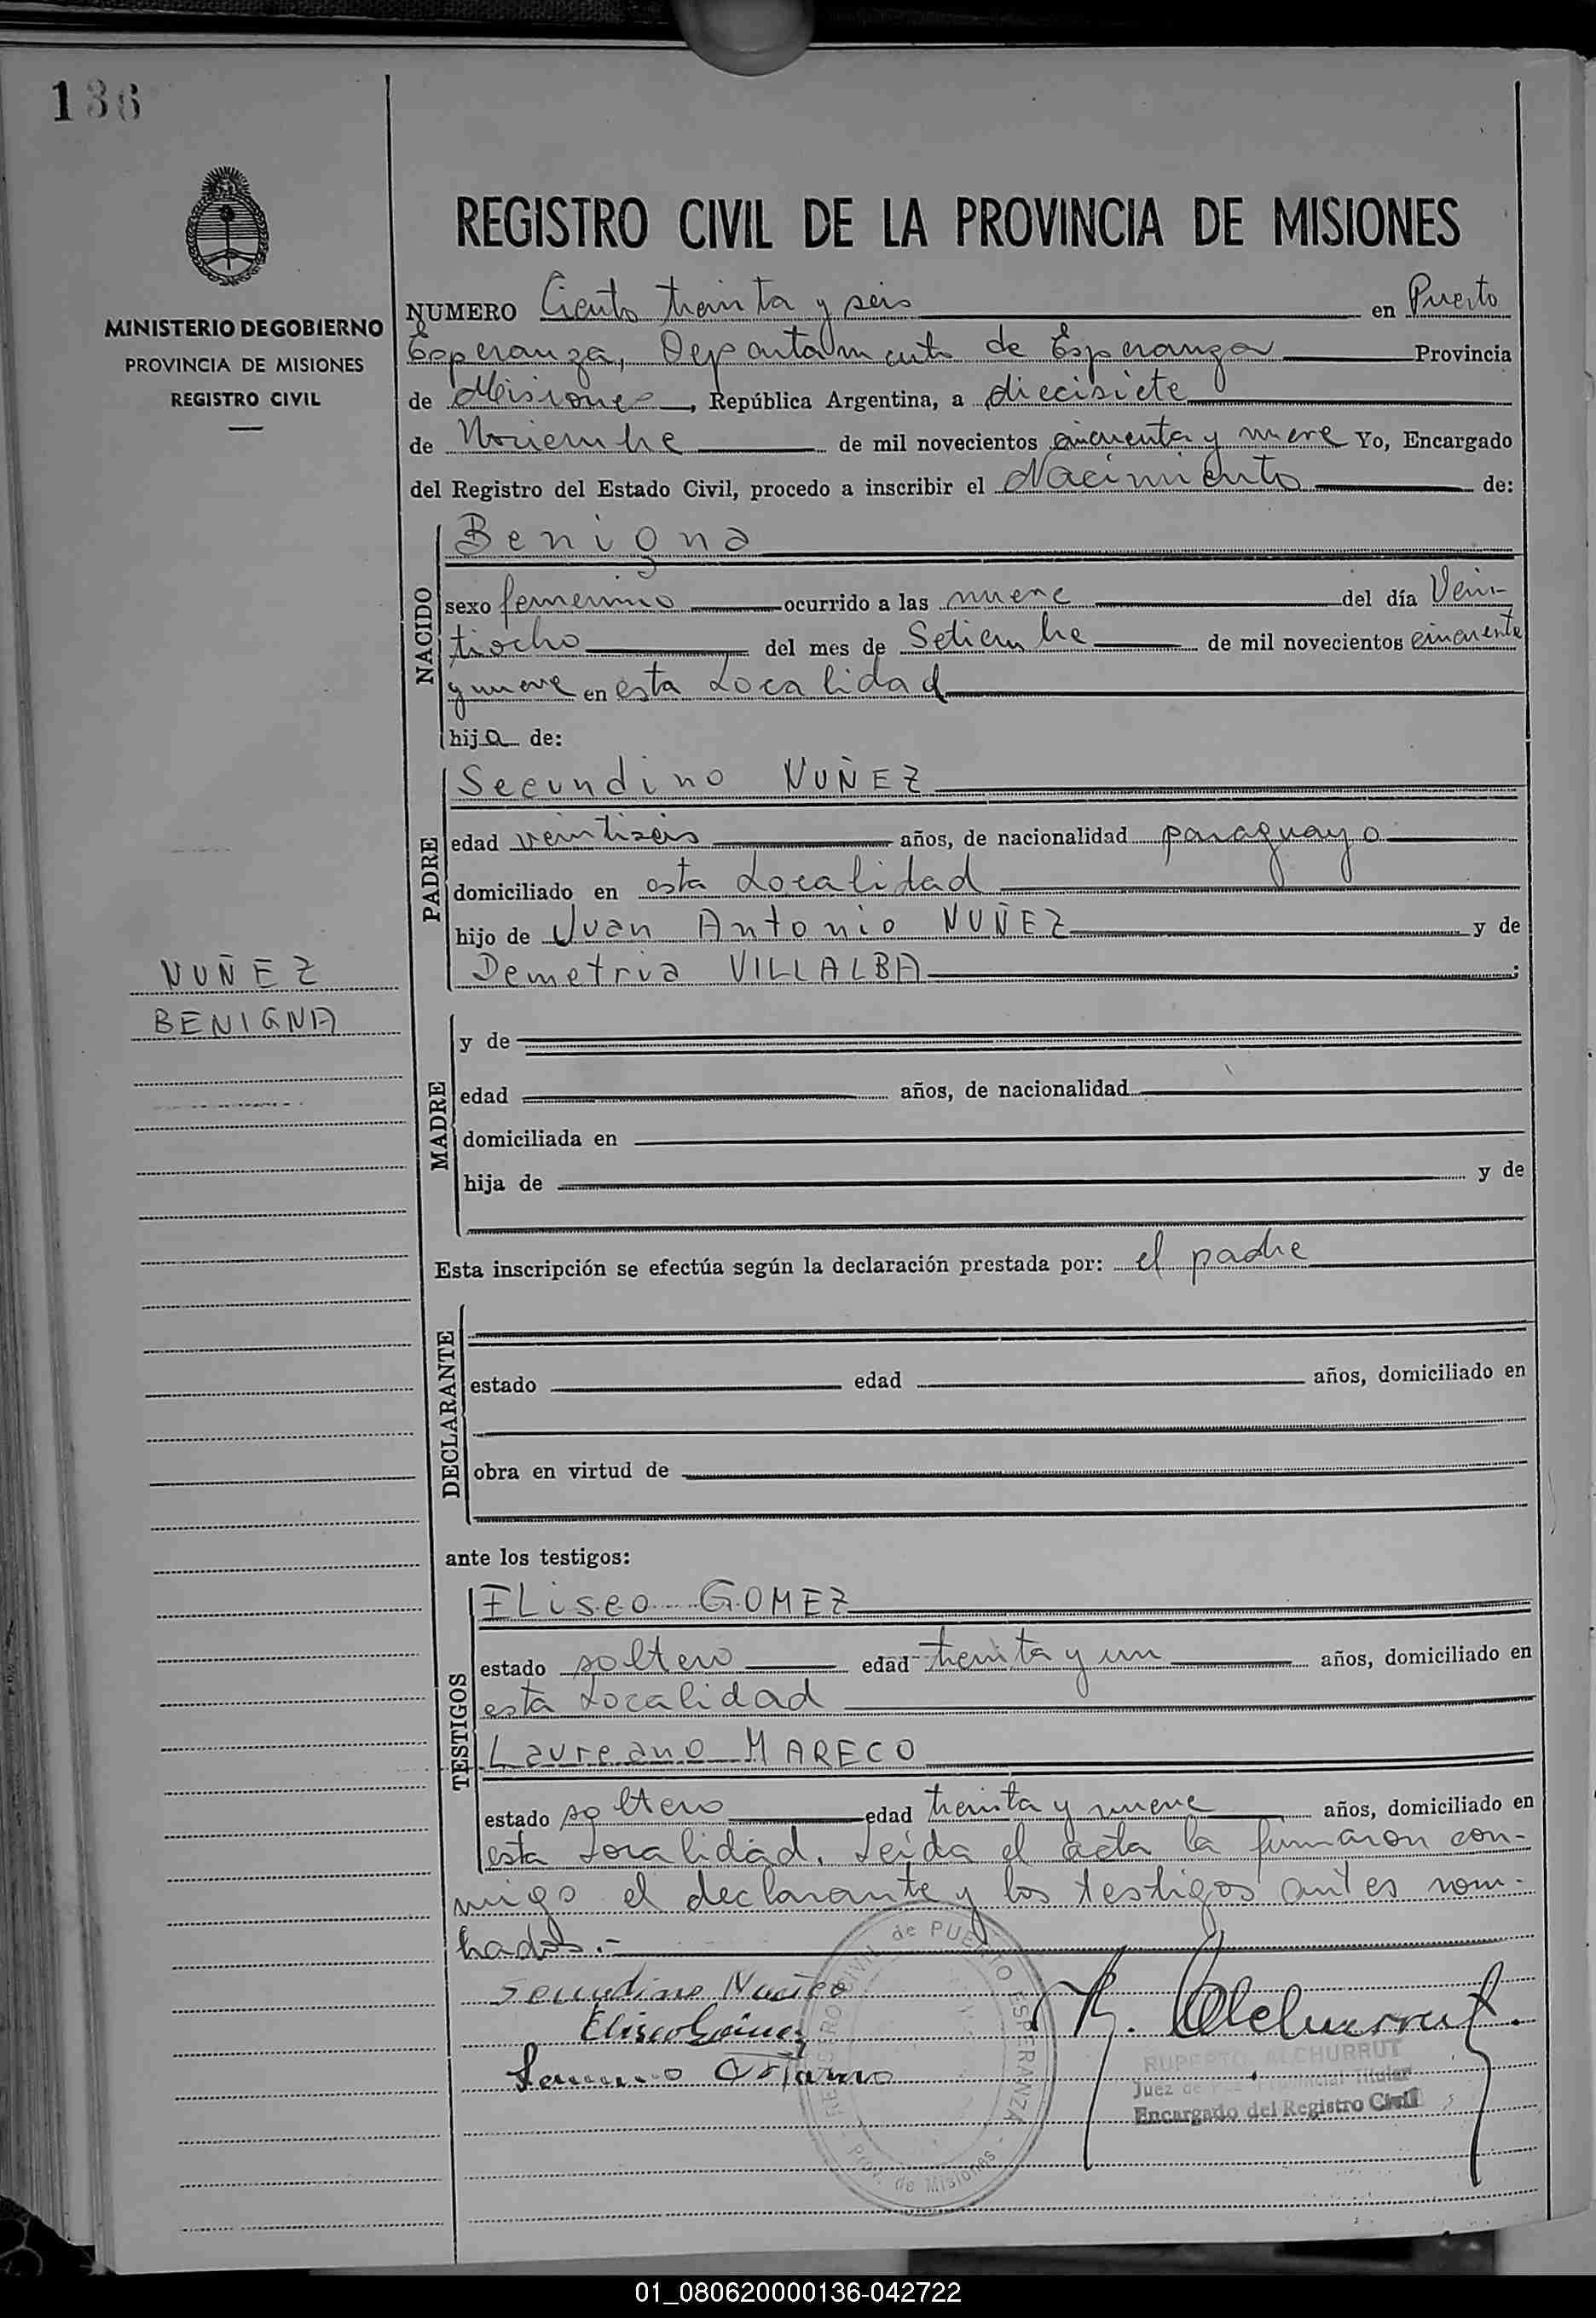 136
MINISTERIO DE GOBIERNO
PROVINCIA DE MISIONES
REGISTRO CIVIL
NUÑEZ
BENIGNA
REGISTRO CIVIL DE LA PROVINCIA DE MISIONES
NUMERO Ciento treinta y seis en Puerto
Esperanza, Departamento de Esperanza Provincia
de Misiones, República Argentina, a diecisiete
de Noviembre de mil novecientos cincuenta y nueve Yo, Encargado
del Registro del Estado Civil, procedo a inscribir el Nacimiento de:
NACIDO
Benigna
sexo femenino ocurrido a las nueve del día Vein-
tiocho del mes de Setiembre de mil novecientos cincuenta
y nueve en esta Localidad
hija de:
PADRE
Secundino NUÑEZ
edad veintiseis años, de nacionalidad paraguayo
domiciliado en esta Localidad
hijo de Juan Antonio NUÑEZ y de
Demetria VILLALBA ;
MADRE
y de
edad años, de nacionalidad
domiciliada en
hija de y de
Esta inscripción se efectúa según la declaración prestada por: el padre
DECLARANTE
estado edad años, domiciliado en
obra en virtud de
ante los testigos:
TESTIGOS
ELiseo GOMEZ
estado soltero edad treinta y un años, domiciliado en
esta Localidad
Laureano MARECO
estado soltero edad treinta y nueve años, domiciliado en
esta Localidad. Leída el acta la firmaron con-
migo el declarante y los testigos antes nom-
brados.-
Secundino Nuñez
Eliseo Gómez
R. Alchurrut.
REGISTRO CIVIL de PUERTO ESPERANZA
Prov. de Misiones
RUPERTO ALCHURRUT
Juez de Paz Provincial Titular
Encargado del Registro Civil
01_080620000136-042722